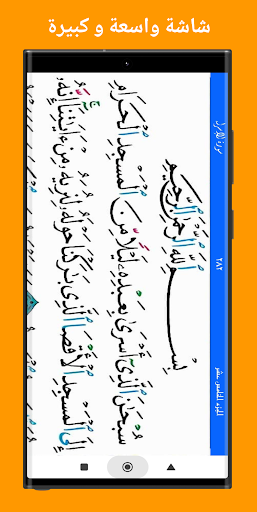 شاشة واسعة و كبيرة
الجزء الخامس عشر
٢٨٢
سورة الإسراء
بِسْمِ اللَّهِ الرَّحْمَٰنِ الرَّحِيمِ
سُبْحَٰنَ ٱلَّذِىٓ أَسْرَىٰ بِعَبْدِهِۦ لَيْلًا مِّنَ ٱلْمَسْجِدِ ٱلْحَرَامِ
إِلَى ٱلْمَسْجِدِ ٱلْأَقْصَا ٱلَّذِى بَٰرَكْنَا حَوْلَهُۥ لِنُرِيَهُۥ مِنْ ءَايَٰتِنَآ إِنَّهُۥ